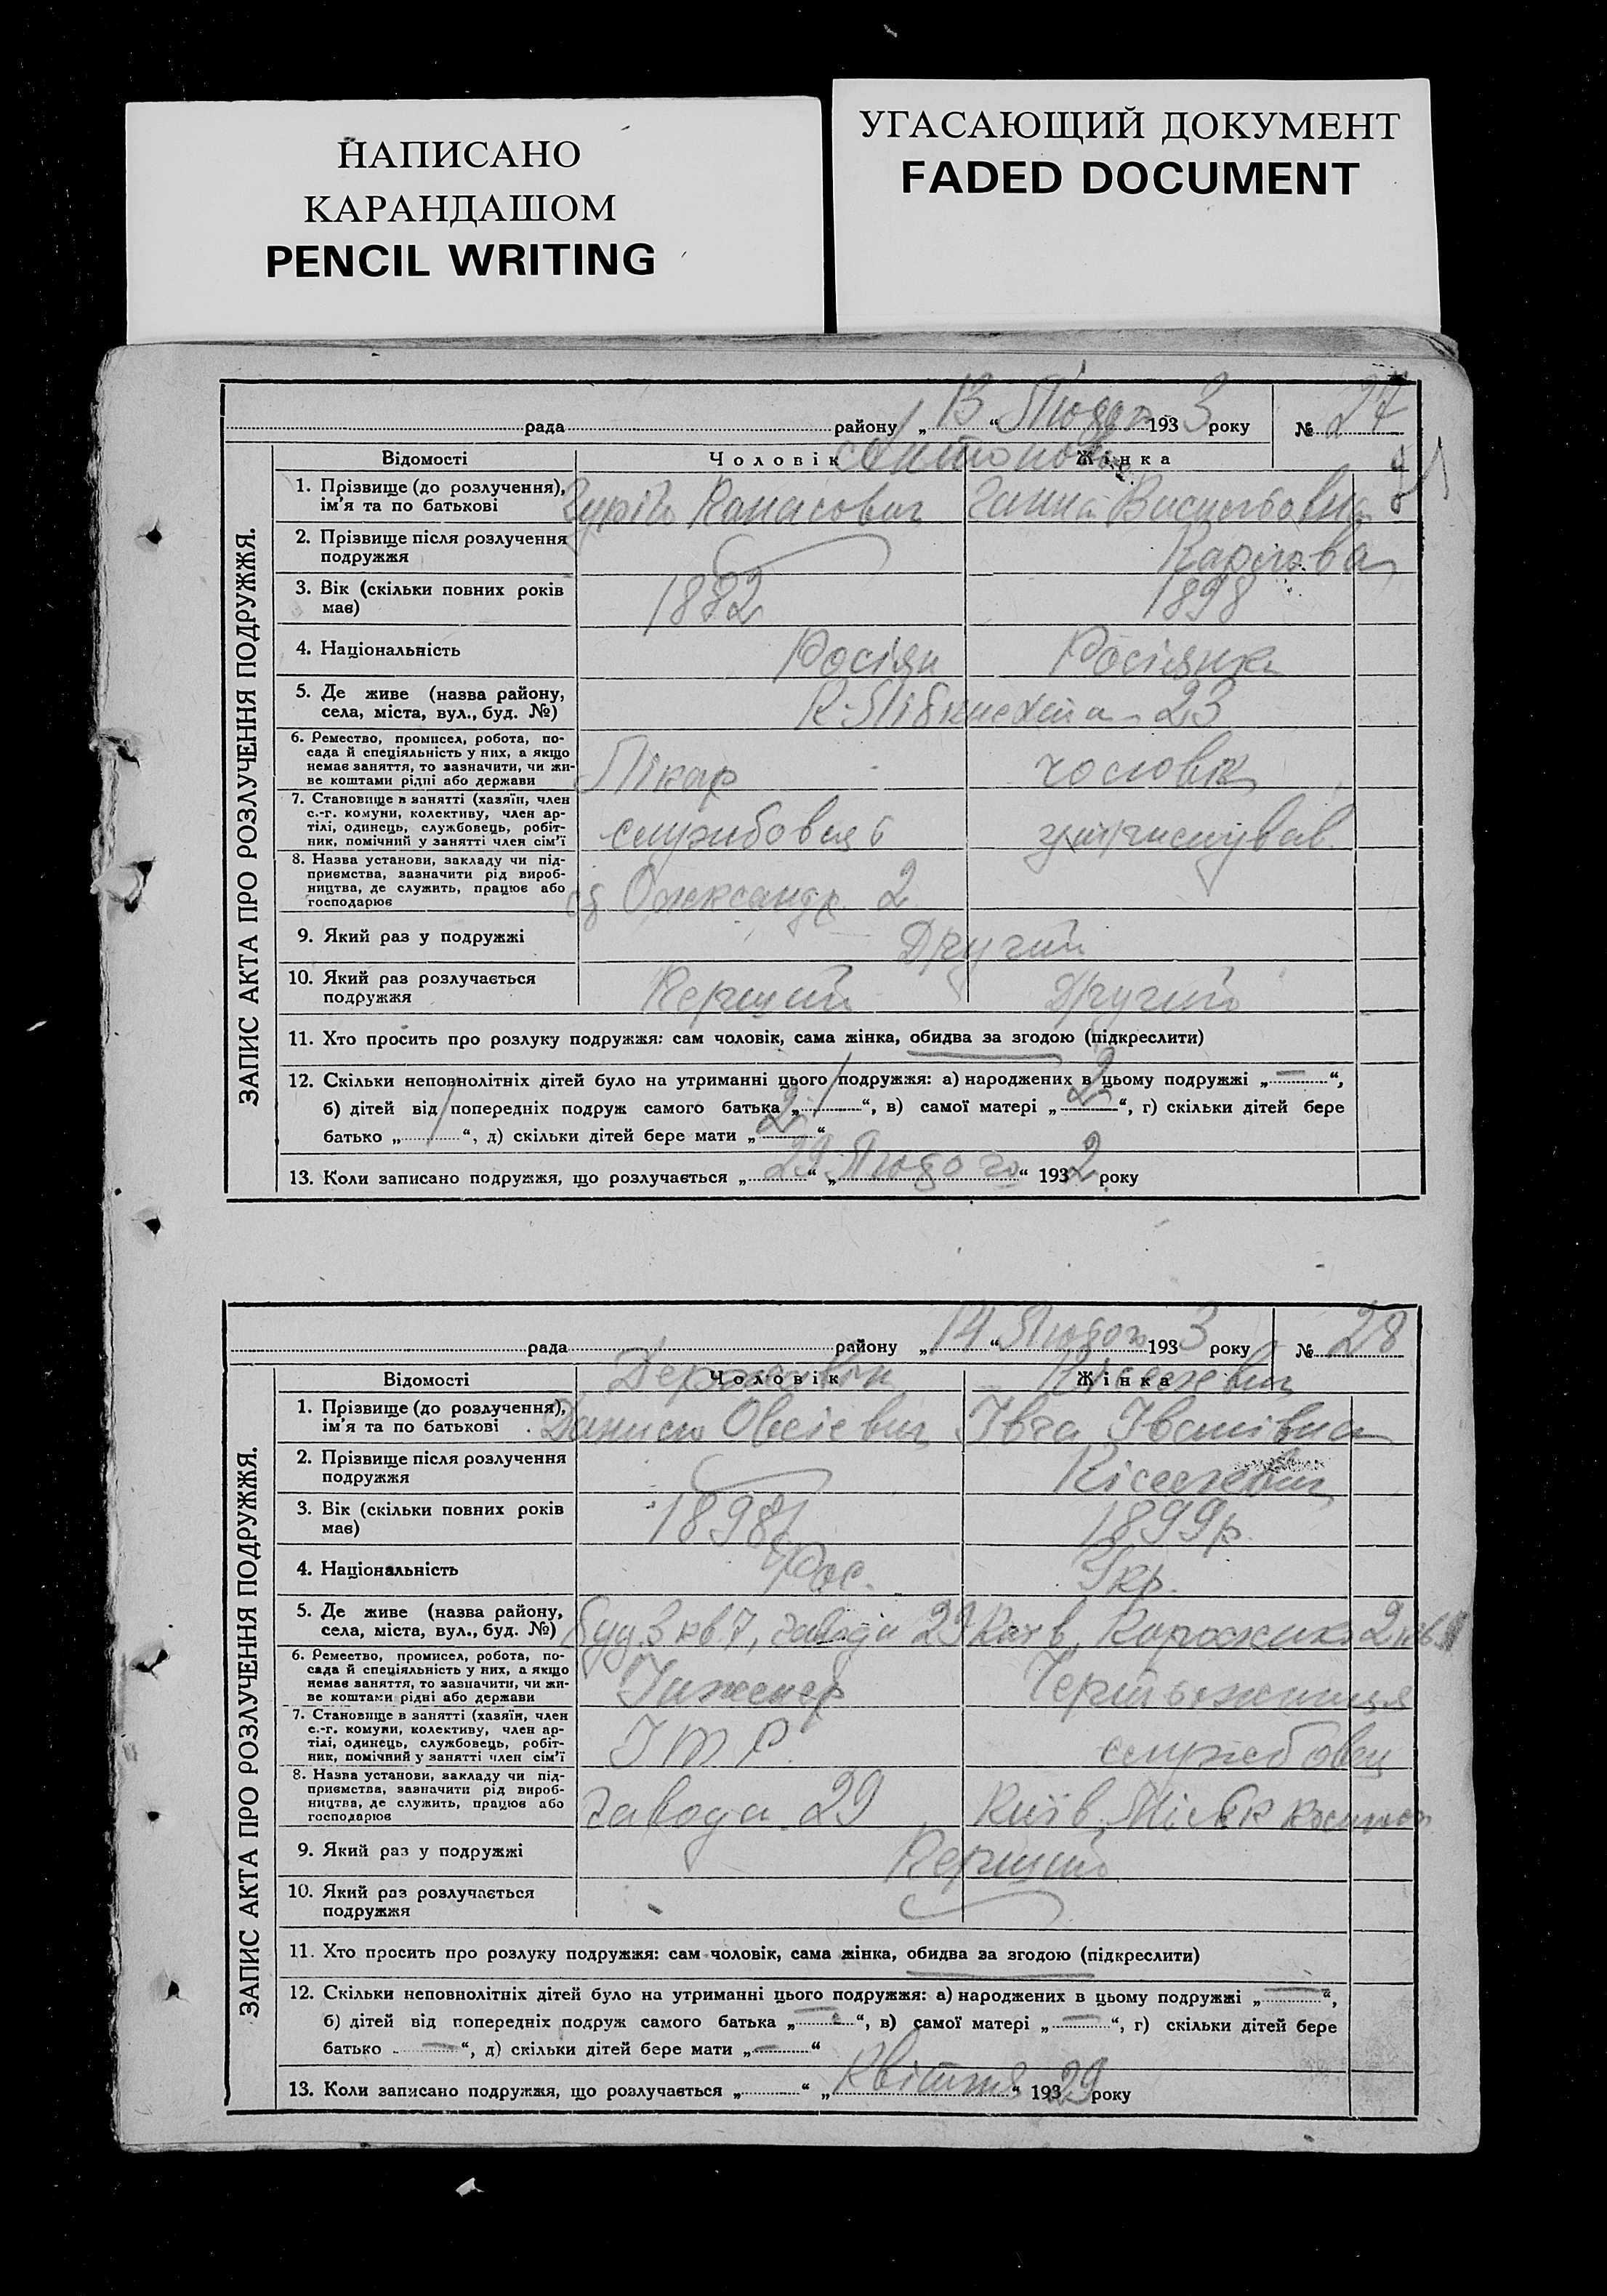 НАПИСАНО
КАРАНДАШОМ
PENCIL WRITING
УГАСАЮЩИЙ ДОКУМЕНТ
FADED DOCUMENT
ЗАПИС АКТА ПРО РОЗЛУЧЕННЯ ПОДРУЖЖЯ.
рада району „13“ Лютого 1933 року № 27
Відомості Чоловік Жінка
1. Прізвище (до розлучення),
ім'я та по батькові
Ганна
2. Прізвище після розлучення
подружжя
3. Вік (скільки повних років
має)
1882 1898
4. Національність Росіян Росіянка
5. Де живе (назва району,
села, міста, вул., буд. №)
К-Лібкнехта 23
6. Ремество, промисел, робота, по-
сада й спеціяльність у них, а якщо
немає заняття, то зазначити, чи жи-
ве коштами рідні або держави
Лікар чоловік
7. Становище в занятті (хазяїн, член
с.-г. комуни, колективу, член ар-
тілі, одинець, службовець, робіт-
ник, помічний у занятті член сім'ї
службовець утримував
8. Назва установи, закладу чи під-
приємства, зазначити рід вироб-
ництва, де служить, працює або
господарює
Олександр. 2
9. Який раз у подружжі Другий
10. Який раз розлучається
подружжя
Перший Другий
11. Хто просить про розлуку подружжя: сам чоловік, сама жінка, обидва за згодою (підкреслити)
12. Скільки неповнолітніх дітей було на утриманні цього подружжя: а) народжених в цьому подружжі „—“,
б) дітей від попередніх подруж самого батька „1“, в) самої матері „2“, г) скільки дітей бере
батько „1“, д) скільки дітей бере мати „2“
13. Коли записано подружжя, що розлучається „29“ „Лютого“ 1932 року
ЗАПИС АКТА ПРО РОЗЛУЧЕННЯ ПОДРУЖЖЯ.
рада району „14“ Лютого 1933 року № 28
Відомості Чоловік Жінка
1. Прізвище (до розлучення),
ім'я та по батькові
Данило Овсієвич Івга Іванівна
2. Прізвище після розлучення
подружжя
3. Вік (скільки повних років
має)
1899р.
4. Національність Рос. Укр.
5. Де живе (назва району,
села, міста, вул., буд. №)
буд. 3 кв 7, завода 29
6. Ремество, промисел, робота, по-
сада й спеціяльність у них, а якщо
немає заняття, то зазначити, чи жи-
ве коштами рідні або держави
Інженер
7. Становище в занятті (хазяїн, член
с.-г. комуни, колективу, член ар-
тілі, одинець, службовець, робіт-
ник, помічний у занятті член сім'ї
ІТР. службовец
8. Назва установи, закладу чи під-
приємства, зазначити рід вироб-
ництва, де служить, працює або
господарює
завода 29 Київ
9. Який раз у подружжі Перший
10. Який раз розлучається
подружжя
11. Хто просить про розлуку подружжя: сам чоловік, сама жінка, обидва за згодою (підкреслити)
12. Скільки неповнолітніх дітей було на утриманні цього подружжя: а) народжених в цьому подружжі „—“,
б) дітей від попередніх подруж самого батька „—“, в) самої матері „—“, г) скільки дітей бере
батько „—“, д) скільки дітей бере мати „—“
13. Коли записано подружжя, що розлучається „ “ „Квітня“ 19329 року